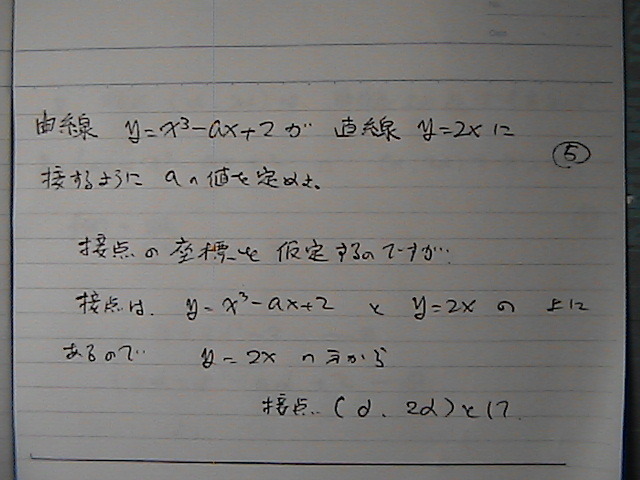 曲線 y=x³-ax+2が 直線 y=2xに
⑤
接するように aの値を定めよ。
接点の座標を仮定するのですが…
接点は、 y=x³-ax+2 と y=2x の 上に
あるので y=2x の方から
接点 (d, 2d) とし